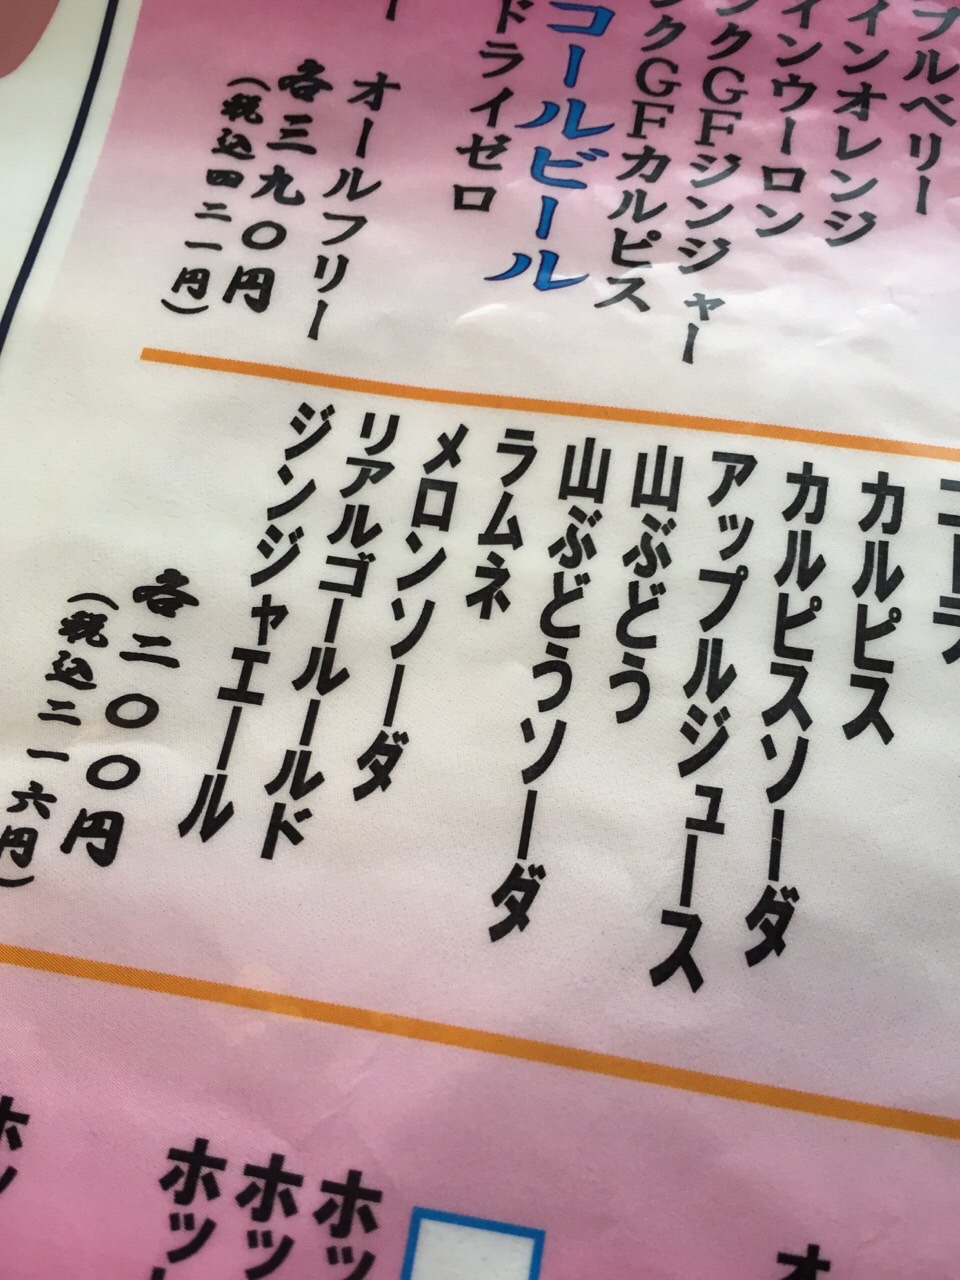 ブルベリー
インオレンジ
インウーロン
ンクGFジンジャー
ンクGFカルピス
コールビール
ドライゼロ
オールフリー
各三九〇円
(税込四二一円)
カルピス
カルピスソーダ
アップルジュース
山ぶどう
山ぶどうソーダ
ラムネ
メロンソーダ
リアルゴールド
ジンジャエール
各二〇〇円
(税込二一六円)
ホッ
ホッ
ホッ
ホッ
オ